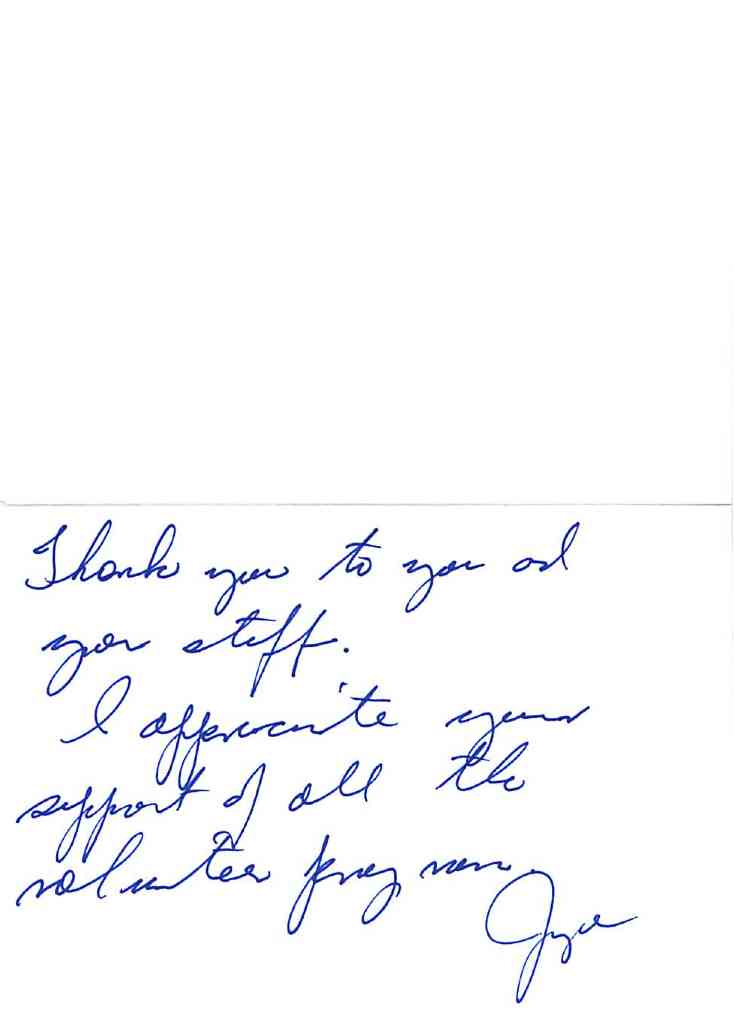 Thank you to you and
your staff.
I appreciate your
support of all the
volunteer programs.
Joyce